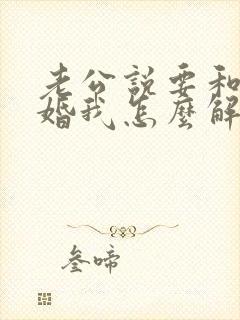 老公說要和
婚我怎麼解
叁啼